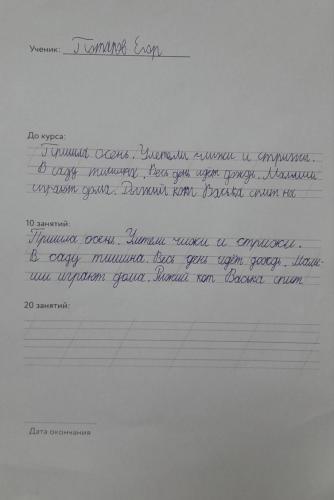 Ученик: Потаров Егор
До курса:
Пришла осень. Улетели чижи и стрижи.
В саду тишина. Весь день идёт дождь. Малыши
играют дома. Рыжий кот Васька спит на
10 занятий:
Пришла осень. Улетели чижи и стрижи.
В саду тишина. Весь день идёт дождь. Малы-
ши играют дома. Рыжий кот Васька спит
20 занятий:
Дата окончания